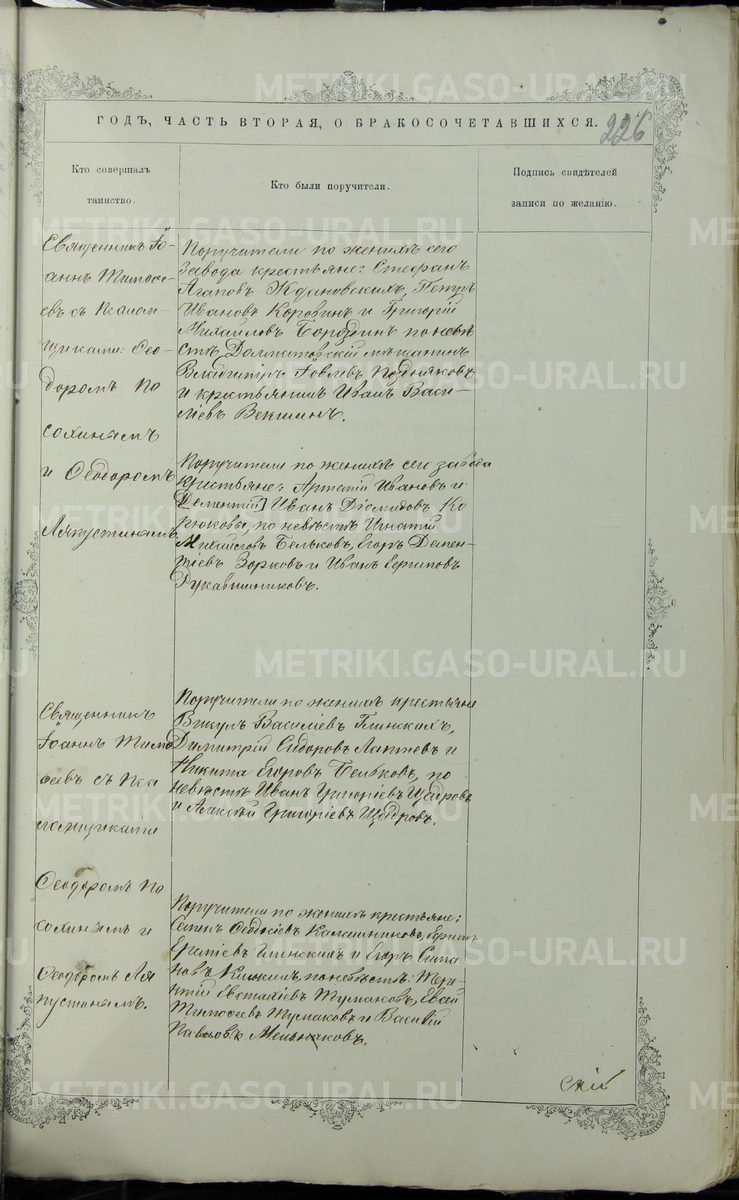 ГОДЪ, ЧАСТЬ ВТОРАЯ, О БРАКОСОЧЕТАВШИХСЯ.
226
Кто совершалъ
таинство.
Кто были поручители.
Подпись свидѣтелей
записи по желанію.
Священникъ Іо-
аннъ Тимоѳе-
евъ съ Псалом-
щиками: Ѳео-
доромъ По
сохинымъ
и Ѳеодоромъ
Ляпустинымъ
Поручители по женихѣ сего
завода крестьяне: Стефанъ
Агаповъ Ждановскихъ, Петръ
Ивановъ Коровинъ и Григорій
Михайловъ Бороздинъ по невѣ
стѣ Далматовскій мѣщанинъ
Владиміръ Іовлевъ Поздняковъ
и крестьянинъ Иванъ Васи-
ліевъ Векшинъ.
Поручители по женихѣ сего завода
крестьяне: Артемій Ивановъ и
Иванъ Діомидовъ Ко
рюковы, по невѣстѣ Игнатій
Михайловъ Бельковъ, Егоръ Демен-
тіевъ Зорковъ и Иванъ
Рукавишниковъ.
Священникъ
Іоаннъ Тимо
ѳеевъ съ Пса
ломщиками
Ѳеодоромъ По
сохинымъ и
Ѳеодоромъ Ля
пустинымъ.
Поручители по женихѣ крестьяне
Викулъ Василіевъ Глинскихъ,
Димитрій Сидоровъ Лаптевъ и
Никита Егоровъ Бельковъ, по
невѣстѣ Иванъ Григоріевъ Щедровъ
и Алексѣй Григоріевъ Щедровъ.
Поручители по женихѣ крестьяне:
Семенъ Ѳеодосіевъ Калашниковъ,
Глинскихъ и Егоръ
по невѣстѣ: Тере-
нтій Евстафіевъ Тумаковъ,
Тимоѳеевъ Тумаковъ и Василій
Павловъ Мельниковъ.
METRIKI.GASO-URAL.RU